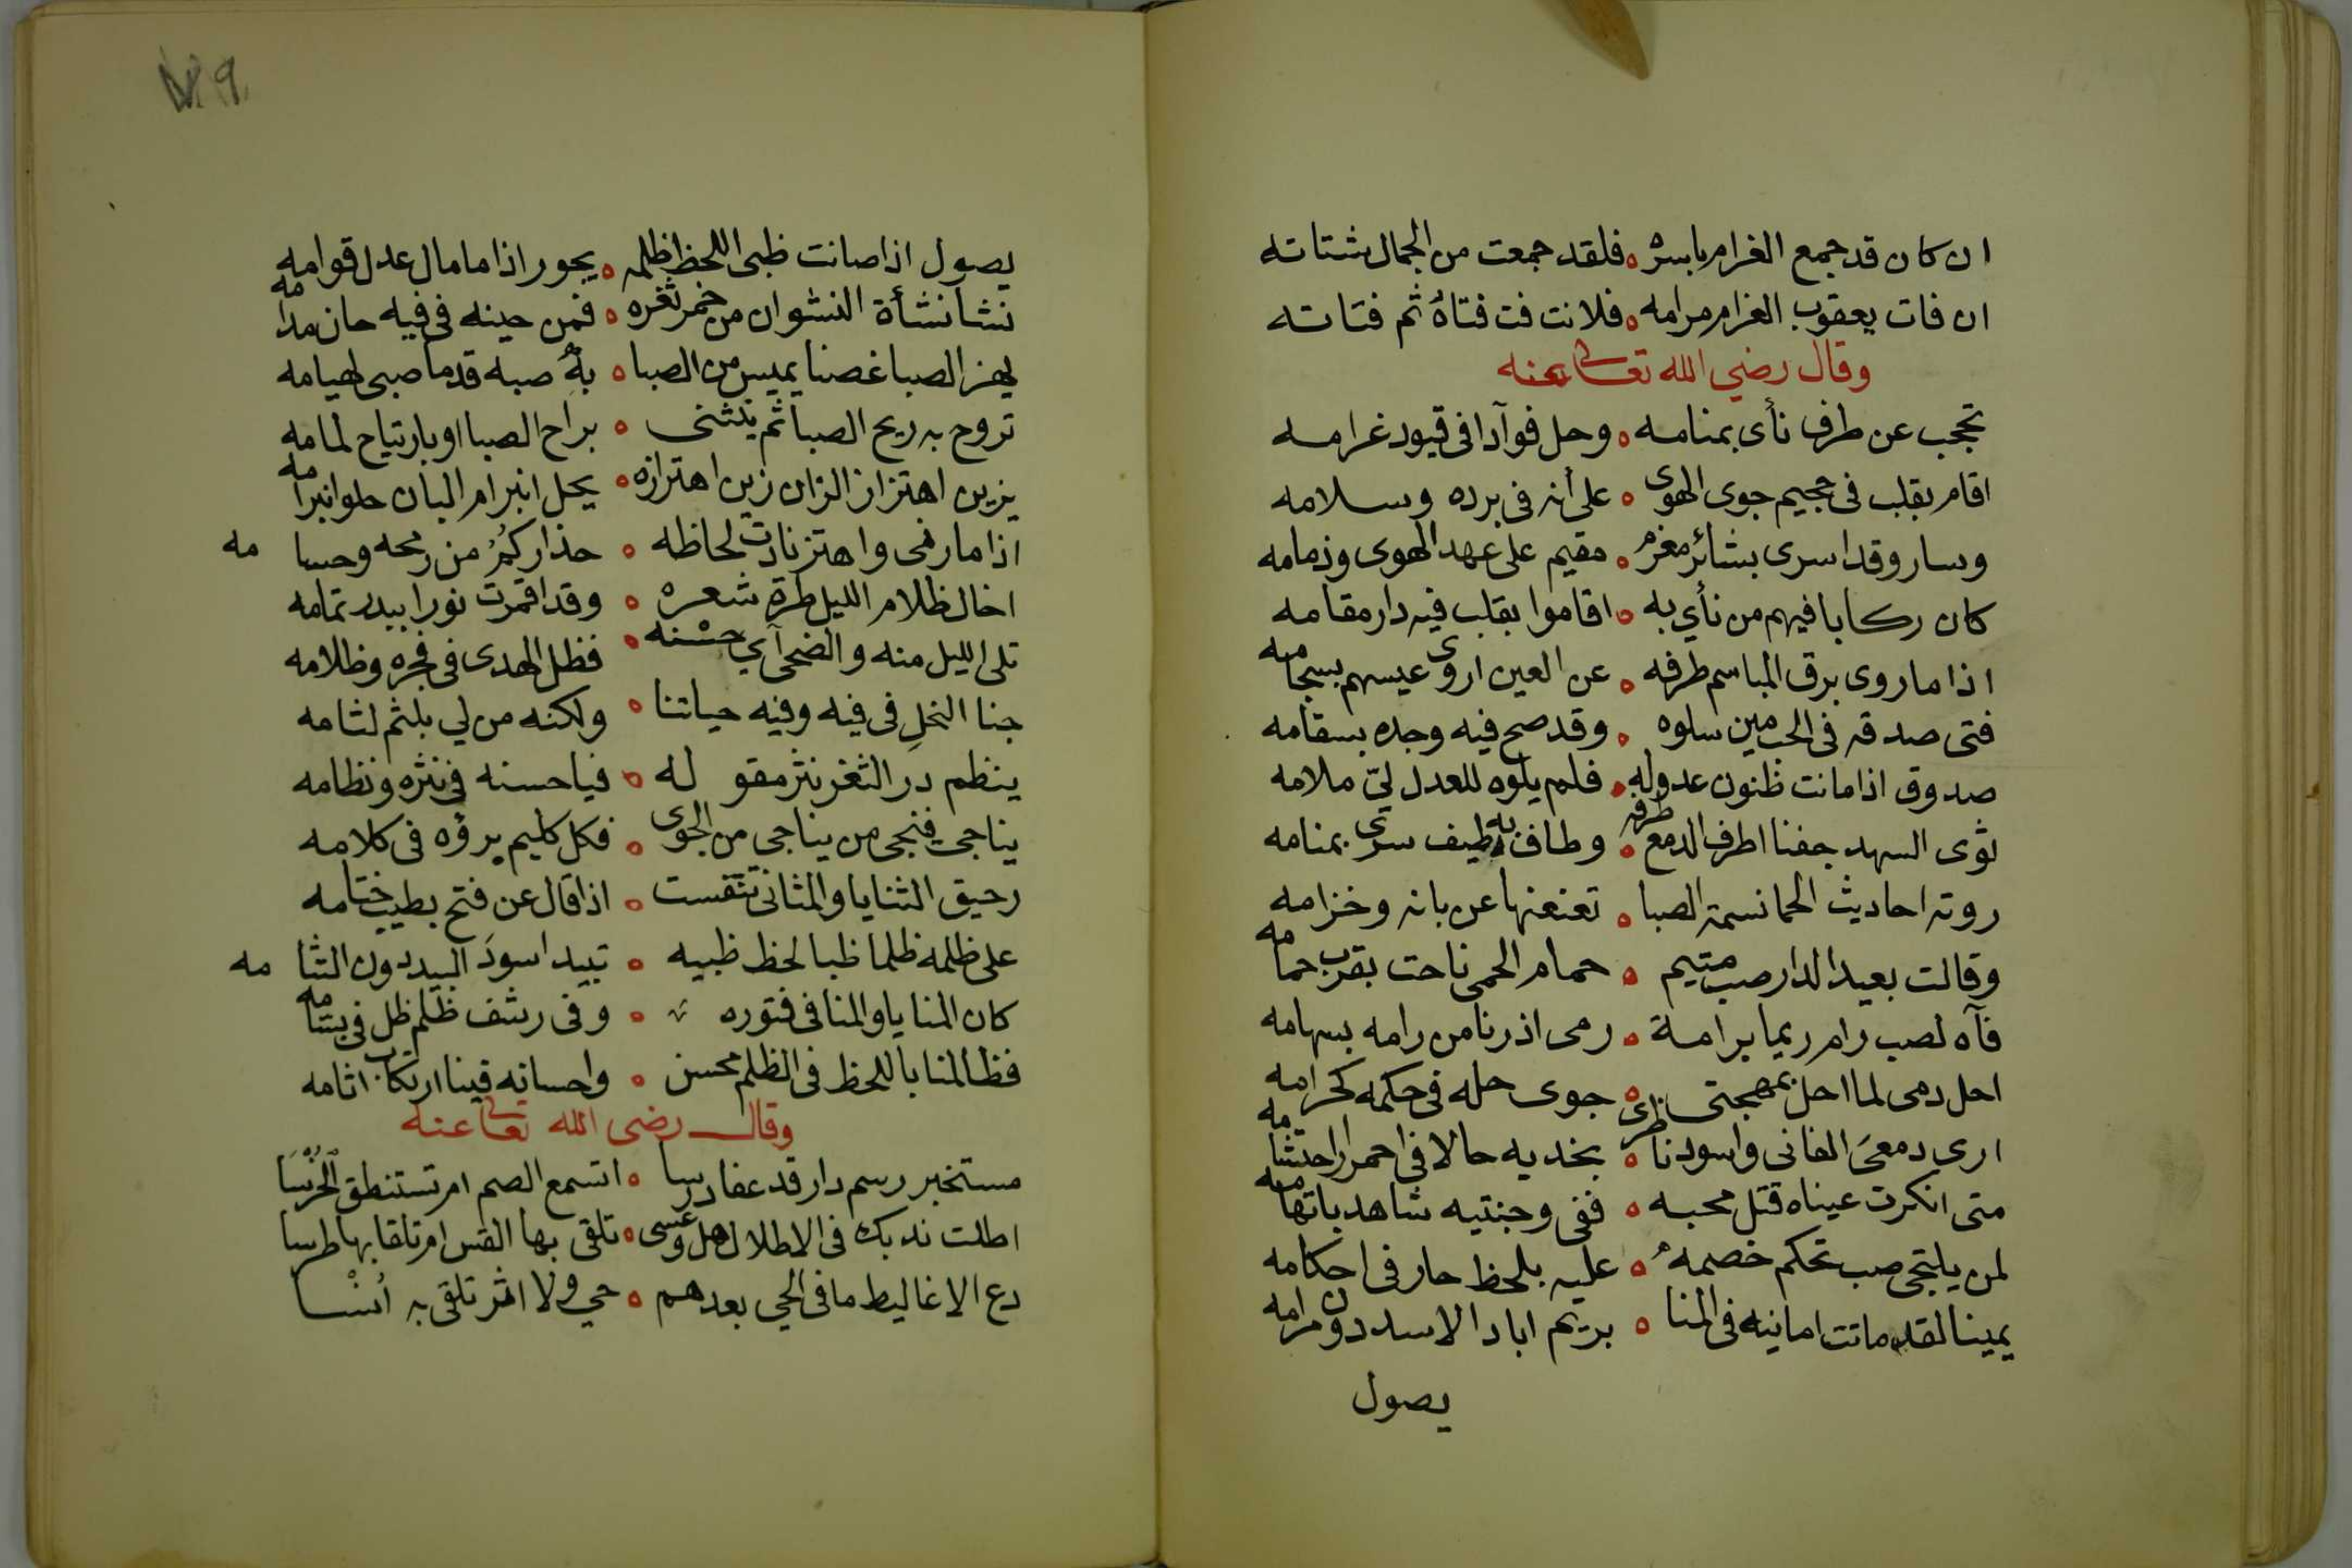 ان كان قد جمع الغرام باسره ه فلقد جمعت من الجمال شتاته
ان فات يعقوب الغرام مرامه ه فلانت فت فتاهُ ثم فتاته
وقال رضي الله تعالى عنه
تحجب عن طرف نأى بمنامه ه وحل فوآدا في قيود غرامه
اقام بقلب في جحيم جوى الهوى ه على أنه في برده وسلامه
وسار وقد اسرى بشائر مغرم ه مقيم على عهد الهوى وذمامه
كان ركابا فيهم من نأي به ه اقاموا بقلب فيه دار مقامه
اذا ما روى برق المباسم طرفه ه عن العين اروى عيسهم بسجامه
فتى صدقه في الحب مين سلوه ه وقد صح فيه وجده بسقامه
صدوق اذا مانت ظنون عدوله ه فلم يلوه للعدل ليّ ملامه
نوى السهد جفنا اطرف الدمع طرفه ه وطاف به طيف سرى بمنامه
روته احاديث الحما نسمة الصبا ه تعنعنها عن بانه وخزامه
وقالت بعيد الدار صب متيم ه حمام الحمى ناحت بقرب حمامه
فآه لصب رام ريما برامة ه رمى اذ رنا من رامه بسهامه
احل دمى لما احل بمهجتى ه جوى حله في حكمه كحرامه
ارى دمعي القاني واسود ناظرى ه بخديه حالا في احمرار لثامه
متى انكرت عيناه قتل محبه ه ففى وجنتيه شاهد باتهامه
لمن يلتجى صب تحكم خصمه ه عليه بلحظ حار فى احكامه
يمينا لقد ماتت امانيه في المنا ه بريم اباد الاسد دون مرامه
يصول
يصول اذا صانت ظبى اللحظ ظلمه ه يجور اذا ما مال عدل قوامه
نشا نشأة النشوان من خمر ثغره ه فمن حينه فى فيه حان مدامه
يهز الصبا غصنا يميس من الصبا ه به صبه قدما صبى لهيامه
تروح به ريح الصبا ثم ينثنى ه براح الصبا او بارتياح لمامه
يزين اهتزاز الزان زين اهتزازه ه يحل انبرام البان حلو انبرامه
اذا ما رنى واهتز نادت لحاظه ه حذاركمُ من رمحه وحسامه
اخال ظلام الليل طرة شعره ه وقد اقمرت نورا ببدر تمامه
تلى الليل منه والضحى آي حسنه ه فظل الهدى فى فجره وظلامه
جنا النحل فى فيه وفيه حياتنا ه ولكنه من لي بلثم لثامه
ينظم در الثغر نثر مقوله ه فيا حسنه فى نثره ونظامه
يناجى فنجى من يناجى من الجوى ه فكل كليم برؤه فى كلامه
رحيق الثنايا والمثانى تنفست ه اذا قال عن فتح بطيب ختامه
على ظلمه ظلما ظبا لحظ ظبيه ه تبيد اسود البيد دون التثامه
كان المنايا والمنا فى فتوره ه وفى رشف ظلم ظل فى بتسامه
فظالمنا باللحظ فى الظلم محسن ه واحسانه فينا ارتكاب اثامه
وقال رضى الله تعالى عنه
مستخبر رسم دار قد عفا درسا ه اتسمع الصم ام تستنطق الخُرُسَا
اطلت ندبك فى الاطلال هل وعسى ه تلقى بها القس ام تلقا بها طرسا
دع الاغاليط ما فى الحي بعدهم ه حي ولا اثر تلقى به أنسا